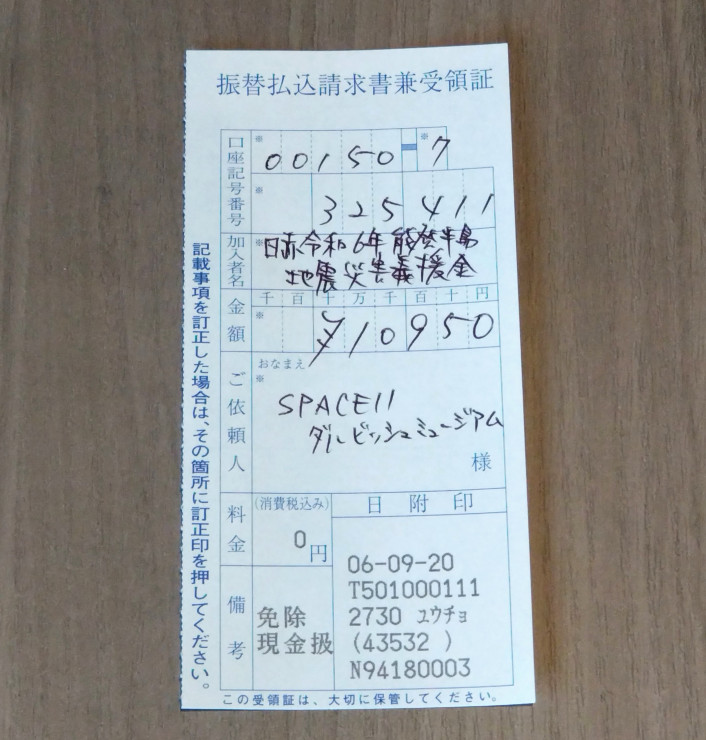 振替払込請求書兼受領証
口座記号番号
※ 00150-※7
※ 325411
加入者名
※ 日赤令和6年能登半島
地震災害義援金
金額
千百十万千百十円
※ ¥10950
ご依頼人
おなまえ
※
SPACE11
ダルビッシュミュージアム
様
料金
(消費税込み)
0円
備考
免除
現金扱
日附印
06-09-20
T501000111
2730 ユウチョ
(43532 )
N94180003
この受領証は、大切に保管してください。
記載事項を訂正した場合は、その箇所に訂正印を押してください。